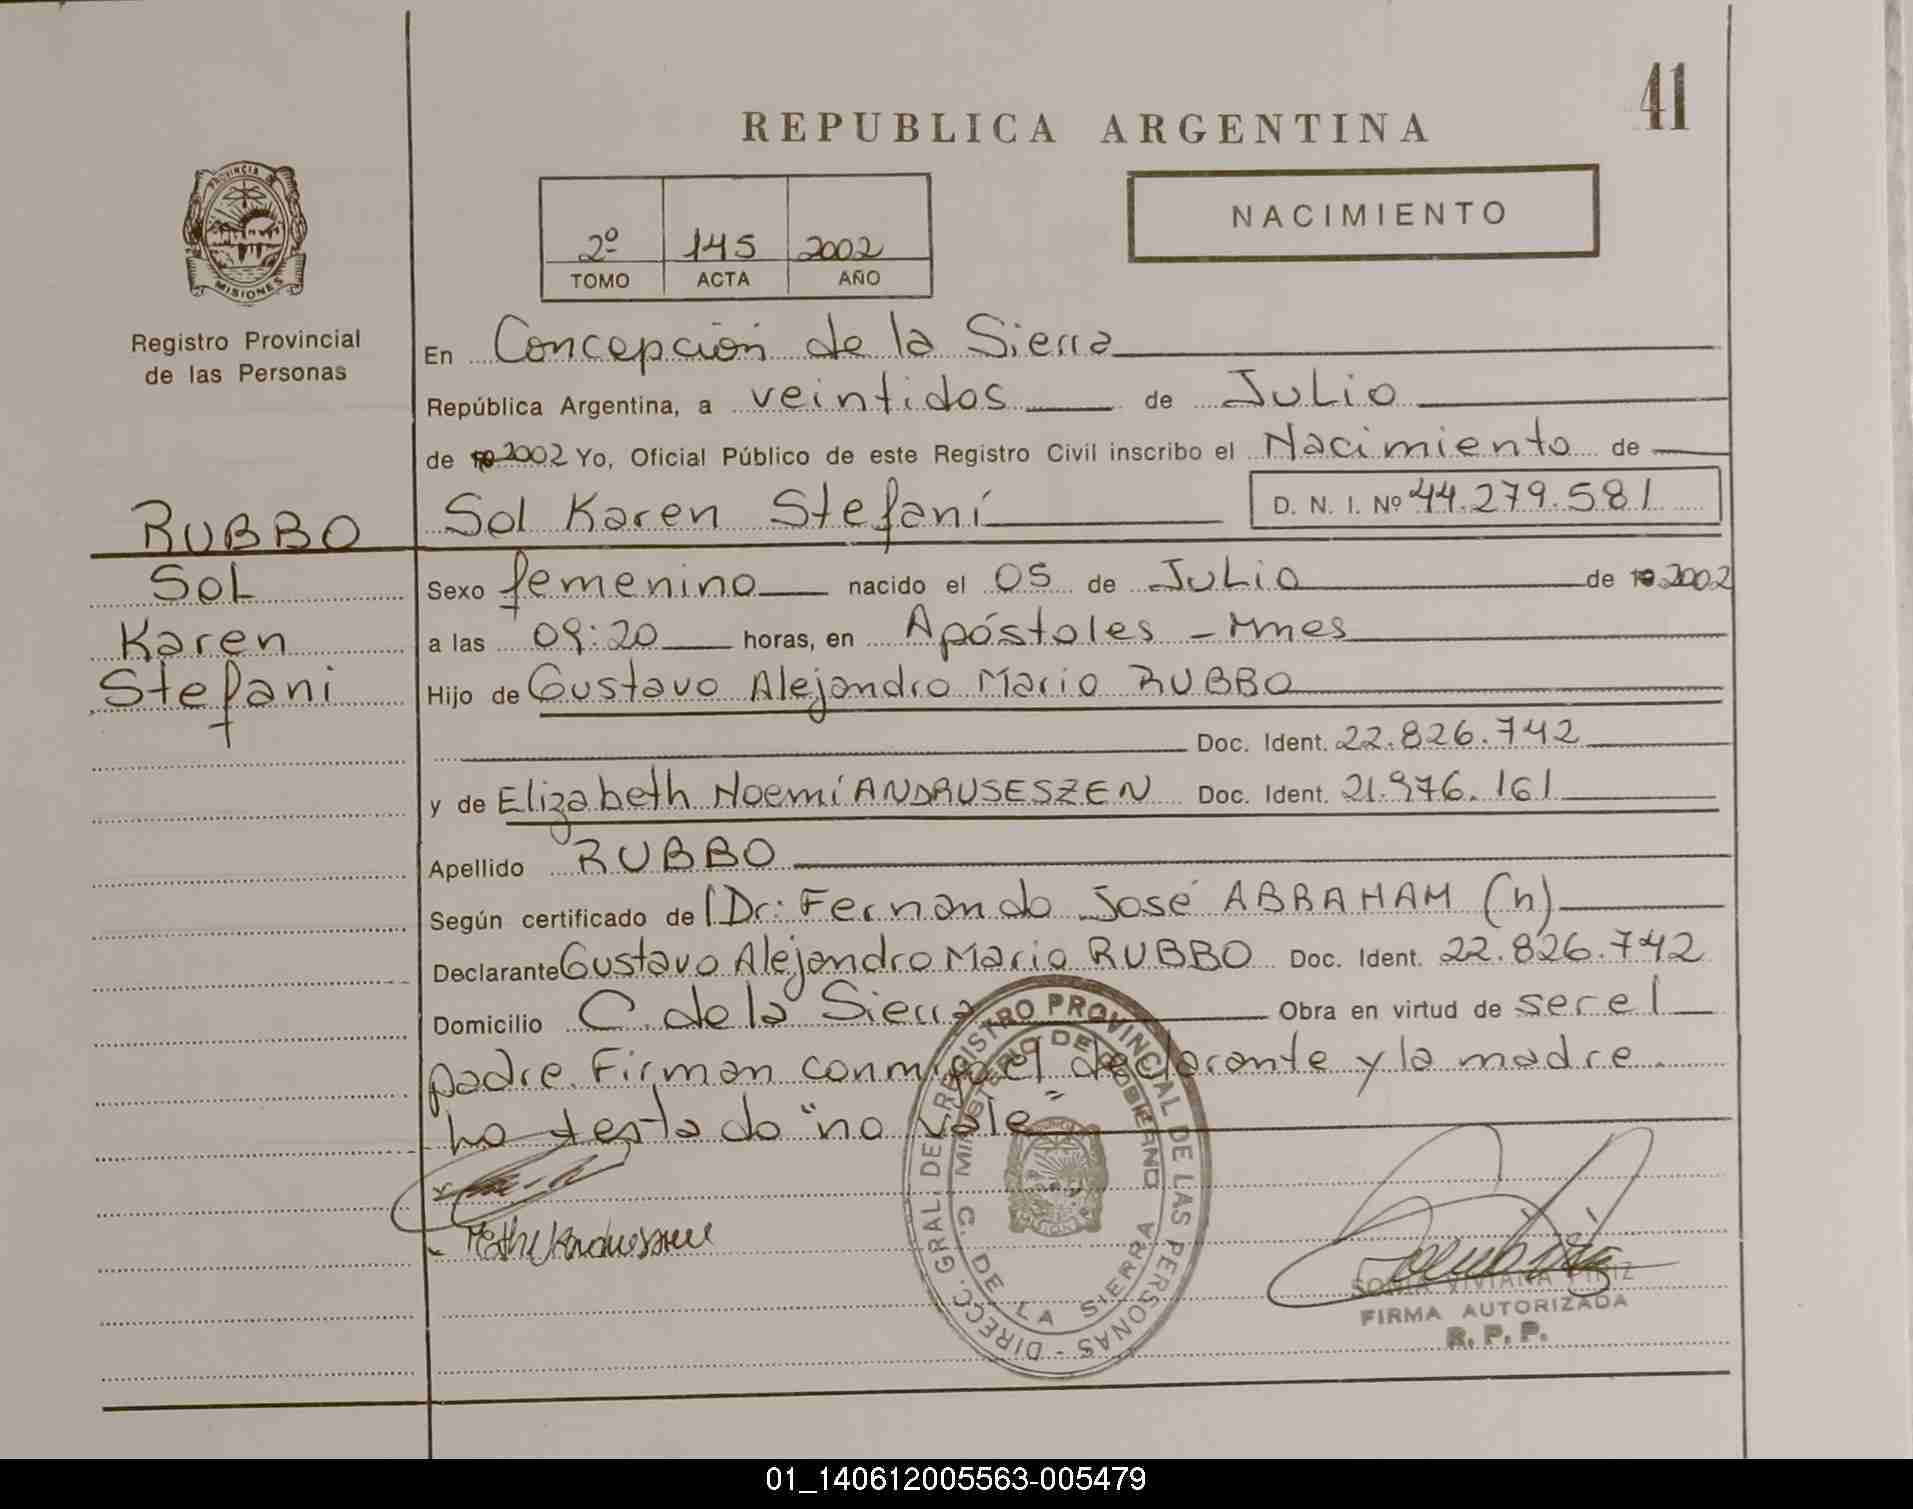 41
REPUBLICA ARGENTINA
NACIMIENTO
2º 145 2002
TOMO ACTA AÑO
PROVINCIA DE MISIONES
Registro Provincial
de las Personas
En Concepción de la Sierra
República Argentina, a veintidos de Julio
de 2002 Yo, Oficial Público de este Registro Civil inscribo el Nacimiento de
Sol Karen Stefaní D. N. I. Nº 44.279.581
RUBBO
Sol
Karen
Stefani
Sexo femenino nacido el 05 de Julio de 19 2002
a las 09:20 horas, en Apóstoles - Mnes
Hijo de Gustavo Alejandro Mario RUBBO
Doc. Ident. 22.826.742
y de Elizabeth Noemí ANDRUSESZEN Doc. Ident. 21.976.161
Apellido RUBBO
Según certificado de Dr: Fernando José ABRAHAM (h)
Declarante Gustavo Alejandro Mario RUBBO Doc. Ident. 22.826.742
Domicilio C. de la Sierra Obra en virtud de ser el
padre. Firman conmigo el declarante y la madre.
lo testado "no vale"
DIRECC. GRAL. DEL REGISTRO PROVINCIAL DE LAS PERSONAS -
MINISTERIO DE GOBIERNO
C. DE LA SIERRA
SONIA VIVIANA PIRIZ
FIRMA AUTORIZADA
R. P. P.
01_140612005563-005479